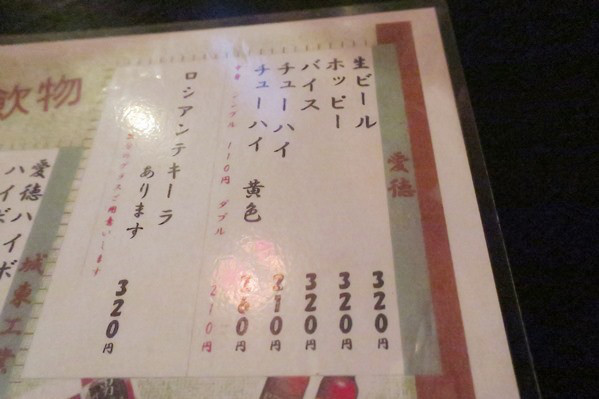 愛徳
生ビール 320円
ホッピー 320円
バイス 320円
チューハイ 210円
チューハイ 黄色 260円
中身 シングル 110円 ダブル 210円
ロシアンテキーラ
あります 320円
飲物
愛徳ハイボ
ハイボ
城東工業